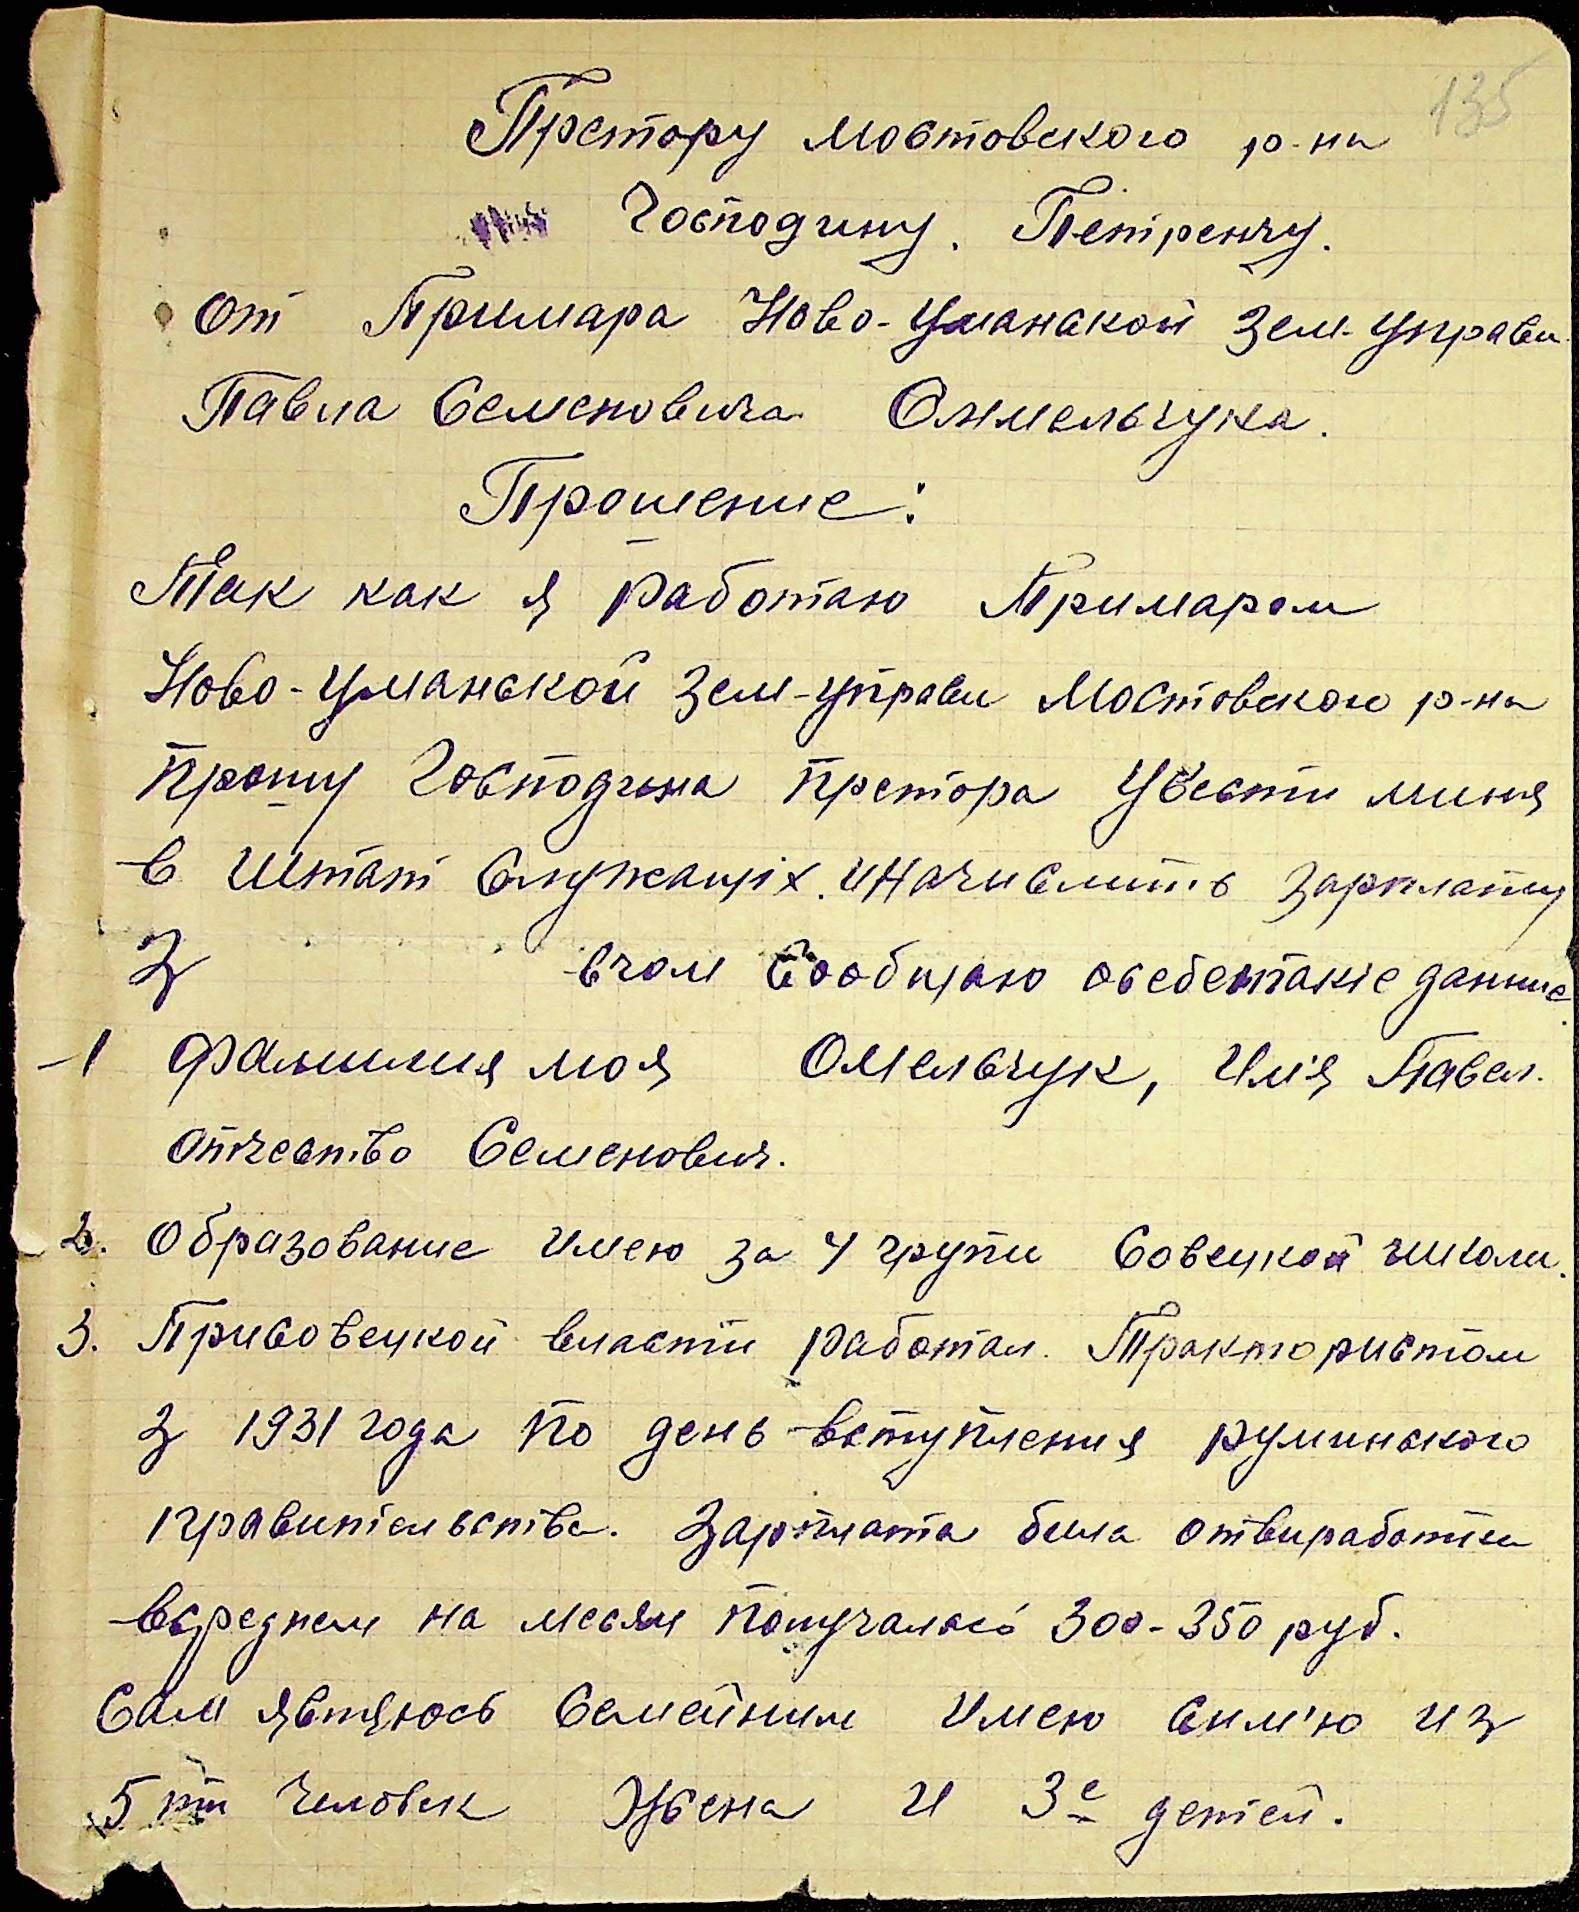 135
Претору Мостовского р-на
Господину. Петренчу.
от Примара Ново-Уманской Зем-Управи
Павла Семеновича Омельчука.
Прошение:
Так как я работаю Примаром
Ново-Уманской Зем-управи Мостовского р-на
прошу Господина претора Увести миня
в штат Служащіх. иначислить зарплату
З вчом Сообщаю осебетакіе данние
1 фамилия моя Омельчук, Им'я Павел.
отчество Семенович.
2. Образование имею за 4 групи Совецкой школи.
3. Присовецкой власти работал. Трактористом
з 1931 года по день вступления руминского
правительства. Зарплата била отвиработки
всреднем на месяц получалось 300-350 руб.
Сам являюсь Семейним имею сим'ю из
5 ти человек Жена и 3е детей.